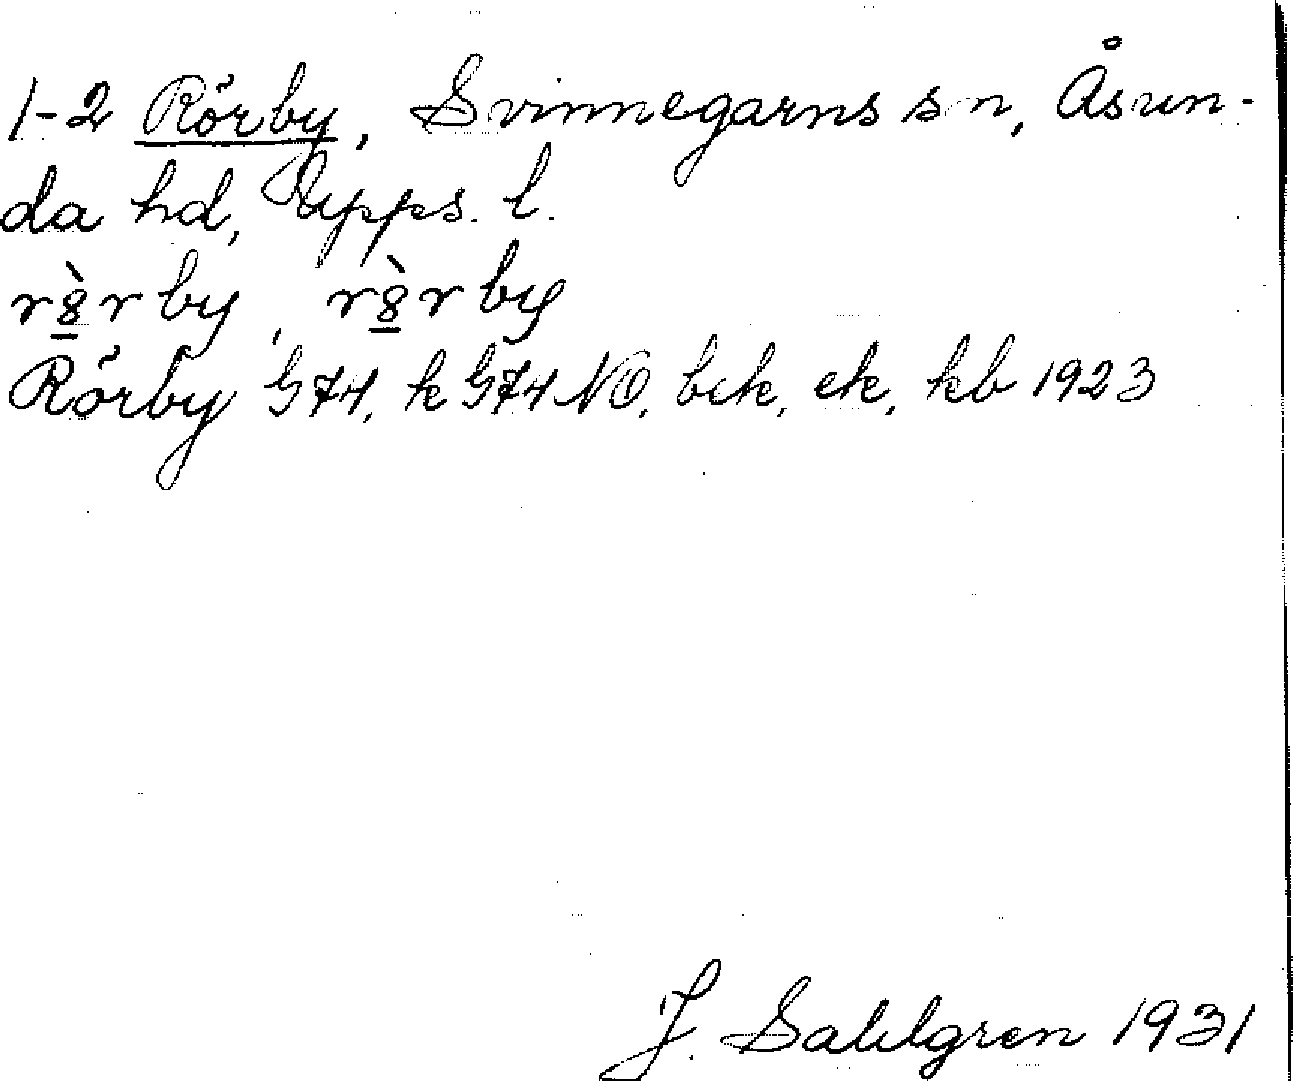 1-2 Rörby, Svinnegarns sn, Åsun-
da hd, Upps. l.
rö̀rby, rö̀rby
Rörby G74, k G74 NO, bek, ek, kb 1923
J. Sahlgren 1931